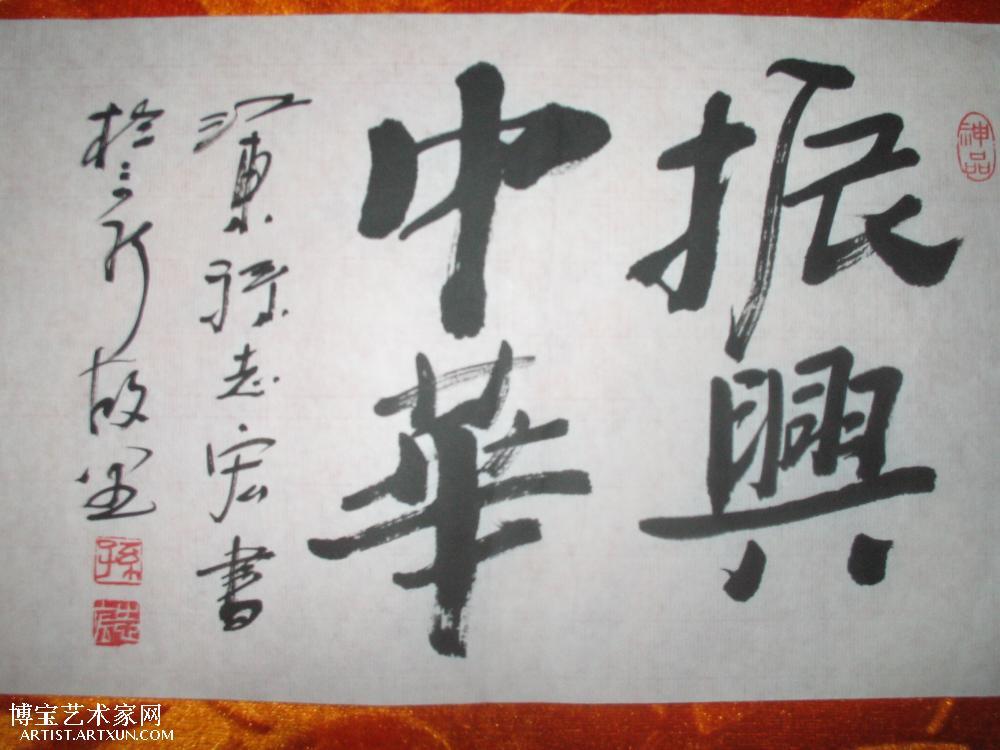 神品
振興
中華
江東孫志宏書
於京故里
孫
志宏
博宝艺术家网
ARTIST.ARTXUN.COM